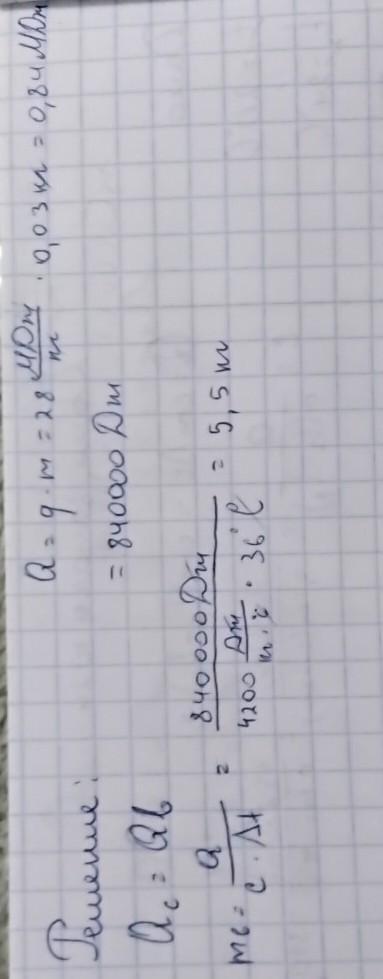 Решение:
Q = q · m = 28 МДж/кг · 0,03 кг = 0,84 МДж
= 840000 Дж
Qс = Qв
mв = Q / c · Δt = 840000 Дж / 4200 Дж/кг·°С · 36°С = 5,5 кг